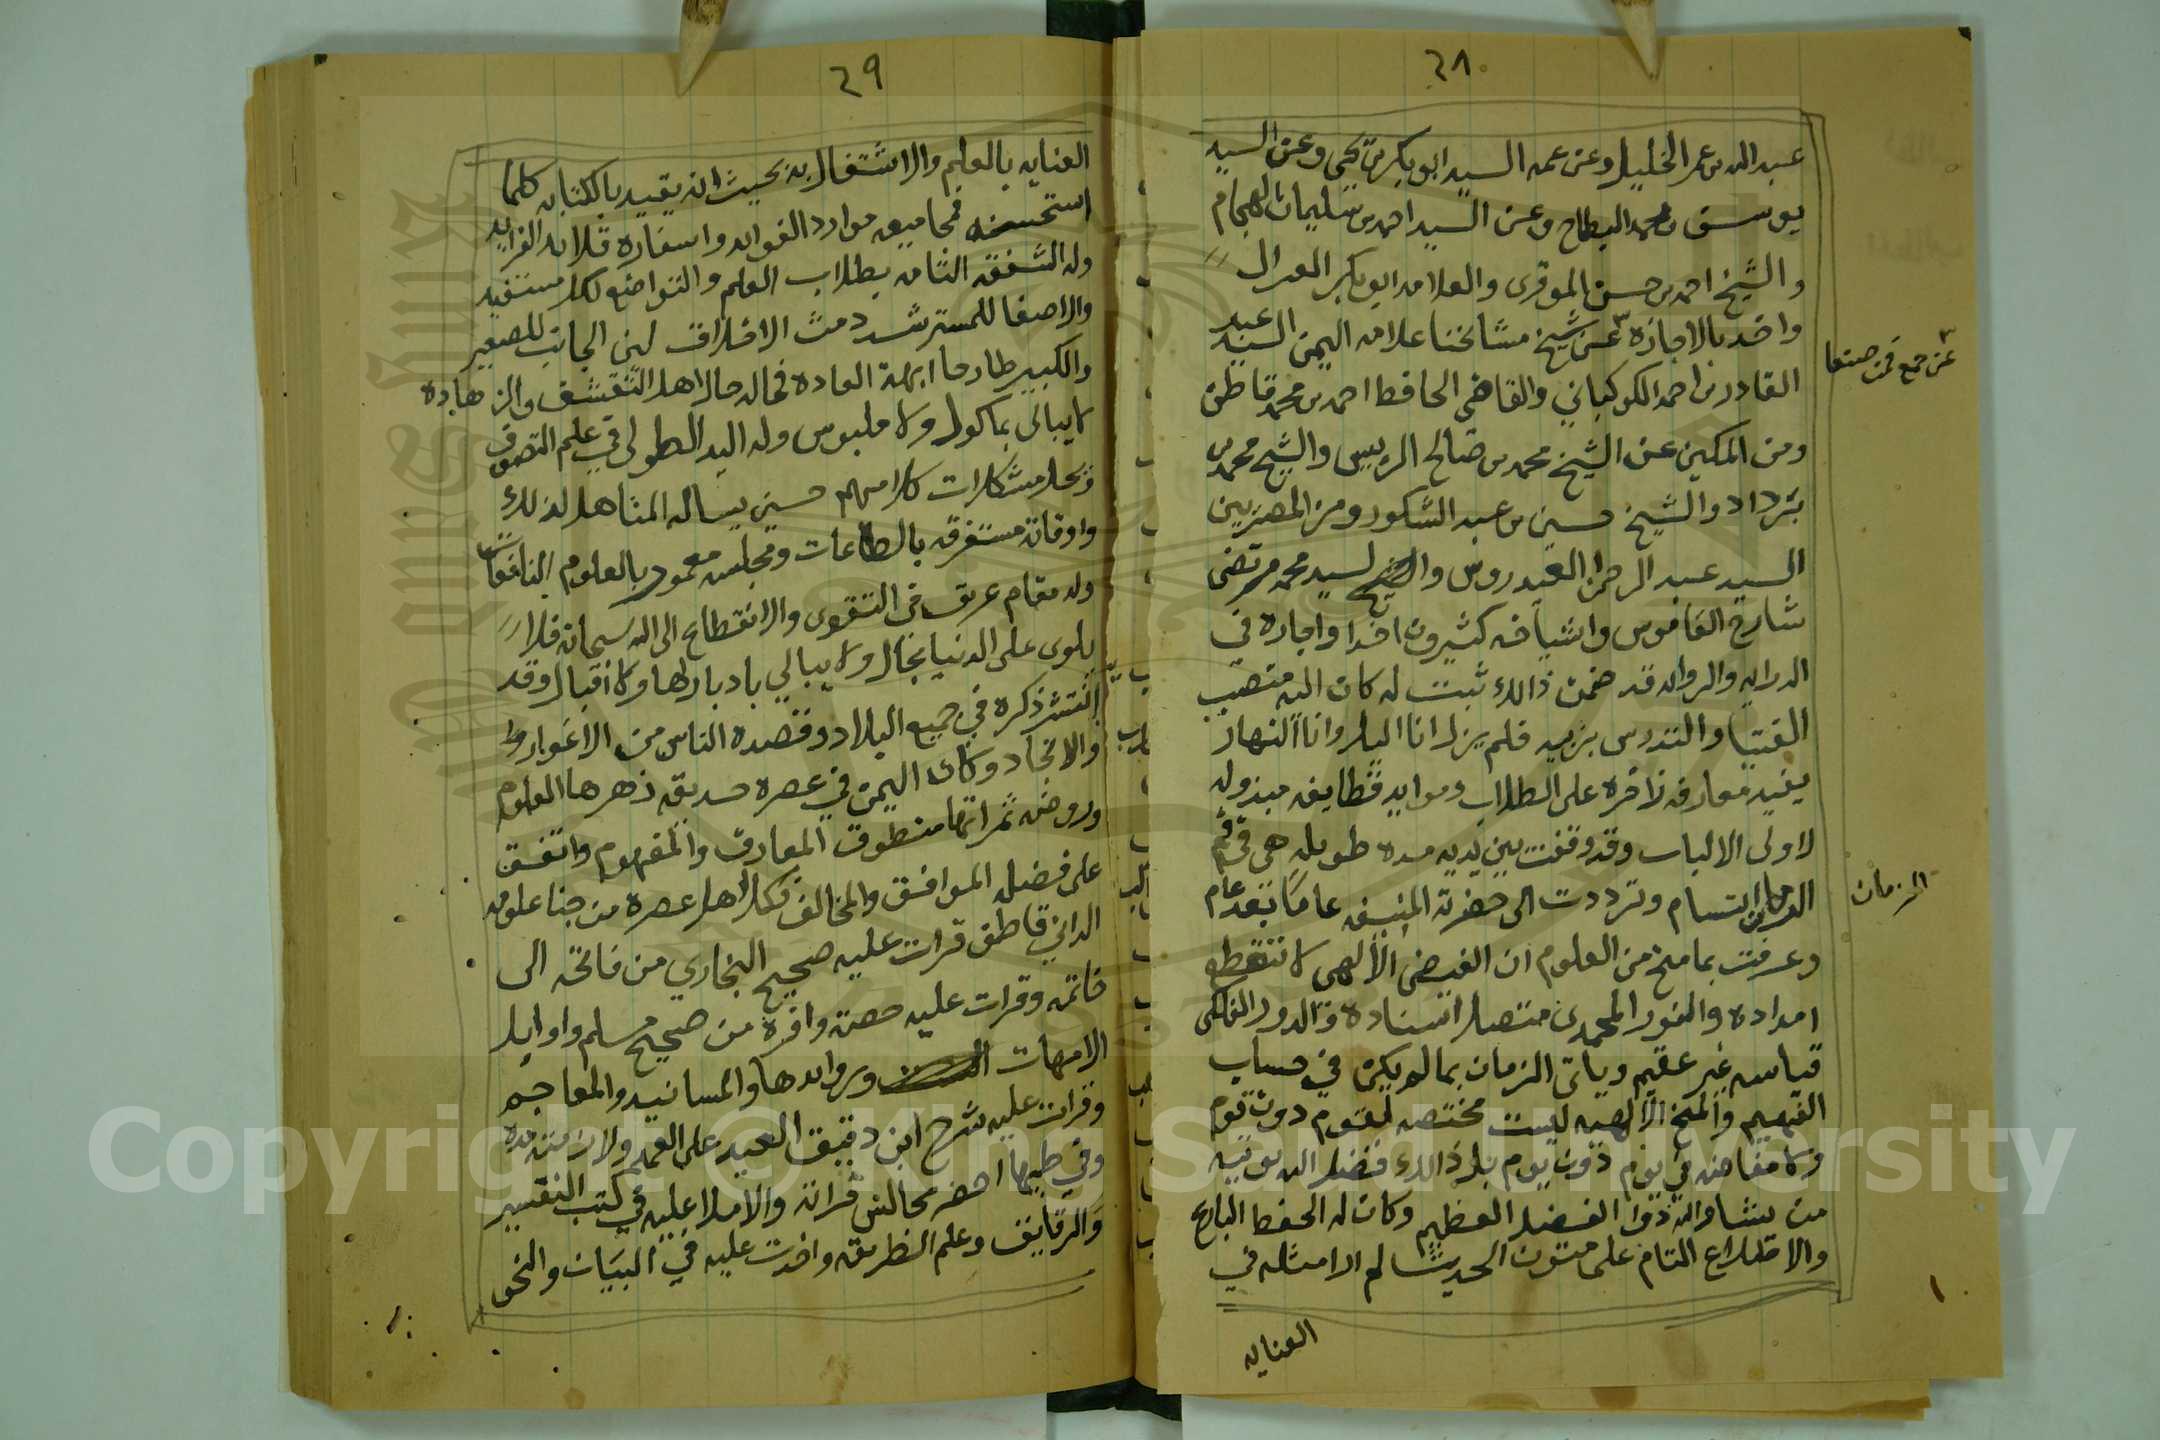 ٢٨
عبد الله بن عمر الخليل وعن عمه السيد ابو بكر بن يحيى وعن السيد
يوسف بن محمد البطاح وعن السيد احمد بن سليمان الهجام
والشيخ احمد بن حسن الموقرى والعلامه ابو بكر الغزال
واخذ بالاجازة عن شيخ مشائخنا علامه اليمن السيد عبد
القادر بن احمد الكوكباني والقاضي الحافظ احمد بن محمد قاطن
ومن المكين عن الشيخ محمد بن صالح الريس والشيخ محمد بن
بزداد والشيخ حسين بن عبد الشكور ومن المصريين
السيد عبد الرحمن العيدروس والسيد محمد مرتضى
شارح القاموس واشياخه كثيرون اخذا واجازة في
الدرايه والروايه قد ضمن ذالك ثبت له كان اليه منصب
الفتيا والتدريس بزبيد فلم يزل انا اليل وانا النهار
يفيد معارفه زاخره على الطلاب وموايد قطايفه مبذوله
لاولى الالباب وقد وقفت بين يديه مده طويله هي في فم
الزمان ابتسام وترددت الى حضرته المنيفه عاما بعد عام
وعرفت بما منح من العلوم ان الفيض الالهى لا تنقطع
امداده والنور المحمدى متصل اسناده والدور الفلكى
قياسه غير عقيم وياتى الزمان بمالم يكن في حساب
الفهيم والمنح الالهيه ليست مختصه لقوم دون قوم
ولا مفاضه في يوم دون يوم بل ذالك فضل الله يوتيه
من يشا والله ذوا الفضل العظيم وكان له الحفظ البارع
والاطلاع التام على متون الحديث لم ار امثله في
العنايه
عن جمع فمن صنعا
الزمان
٢٩
العنايه بالعلم والاشتغال به بحيث انه يقيد بالكتابه كلما
استحسنه فمجاميعه موارد الفوايد واسفاره قلايد الفرايد
وله الشفقه التامه بطلاب العلم والتواضع لكل مستفيد
والاصغا للمسترشد دمث الاخلاق لين الجانب للصغير
والكبير طارحا ابهة العاده فحاله حال اهل التقشف والزهاده
لا يبالى بماكول ولا ملبوس وله اليد الطولى في علم التصوف
ويحل مشكلات كلامهم حسين يساله المتاهل لذلك
واوقاته مستغرقه بالطاعات ومجلسه معمور بالعلوم النافعات
وله مقام عريق في التقوى والانقطاع الى الله سبحانه فلا
يلوى على الدنيا بحال ولا يبالي بادبارها ولا اقبال وقد
انتشر ذكره في جميع البلاد وقصده الناس من الاغوار وا
والانجاد وكان اليمن في عصره حديقه زهرها العلوم
وروضه ثمراتها منطوق المعارف والمفهوم واتفق
على فضله الموافق والمخالف فكل اهل عصره من جنا علومه
الداني قاطف قرات عليه صحيح البخاري من فاتحه الى
خاتمه وقرات عليه حصة وافره من صحيح مسلم واوايل
الامهات وزوايدها والمسانيد والمعاجم
وقرات عليه شرح ابن دقيق العيد على العمده ولازمته مده
وفي طيها احضر مجالس قراته والاملا عليه في كتب التفسير
والرقايق وعلم الطريقه واخذت عليه في البيان والنحو
Copyright © King Saud University